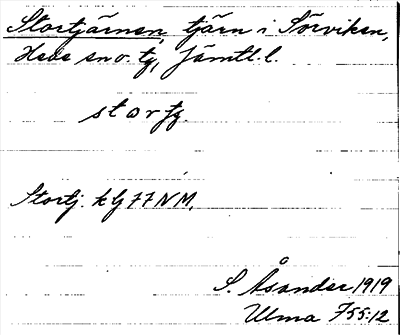 Stortjärnen, tjärn i Sörviken,
Hede sn o. tg, Jämtl. l.
stortj.
Stortj. kbj 77 NM.
S. Åsander 1919
Ulma 755:12